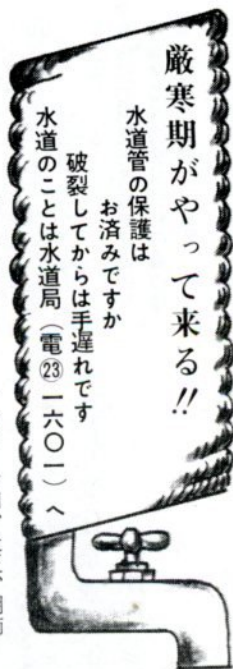 厳寒期がやって来る!!
水道管の保護は
お済みですか
破裂してからは手遅れです
水道のことは水道局(電㉓一六〇一)へ